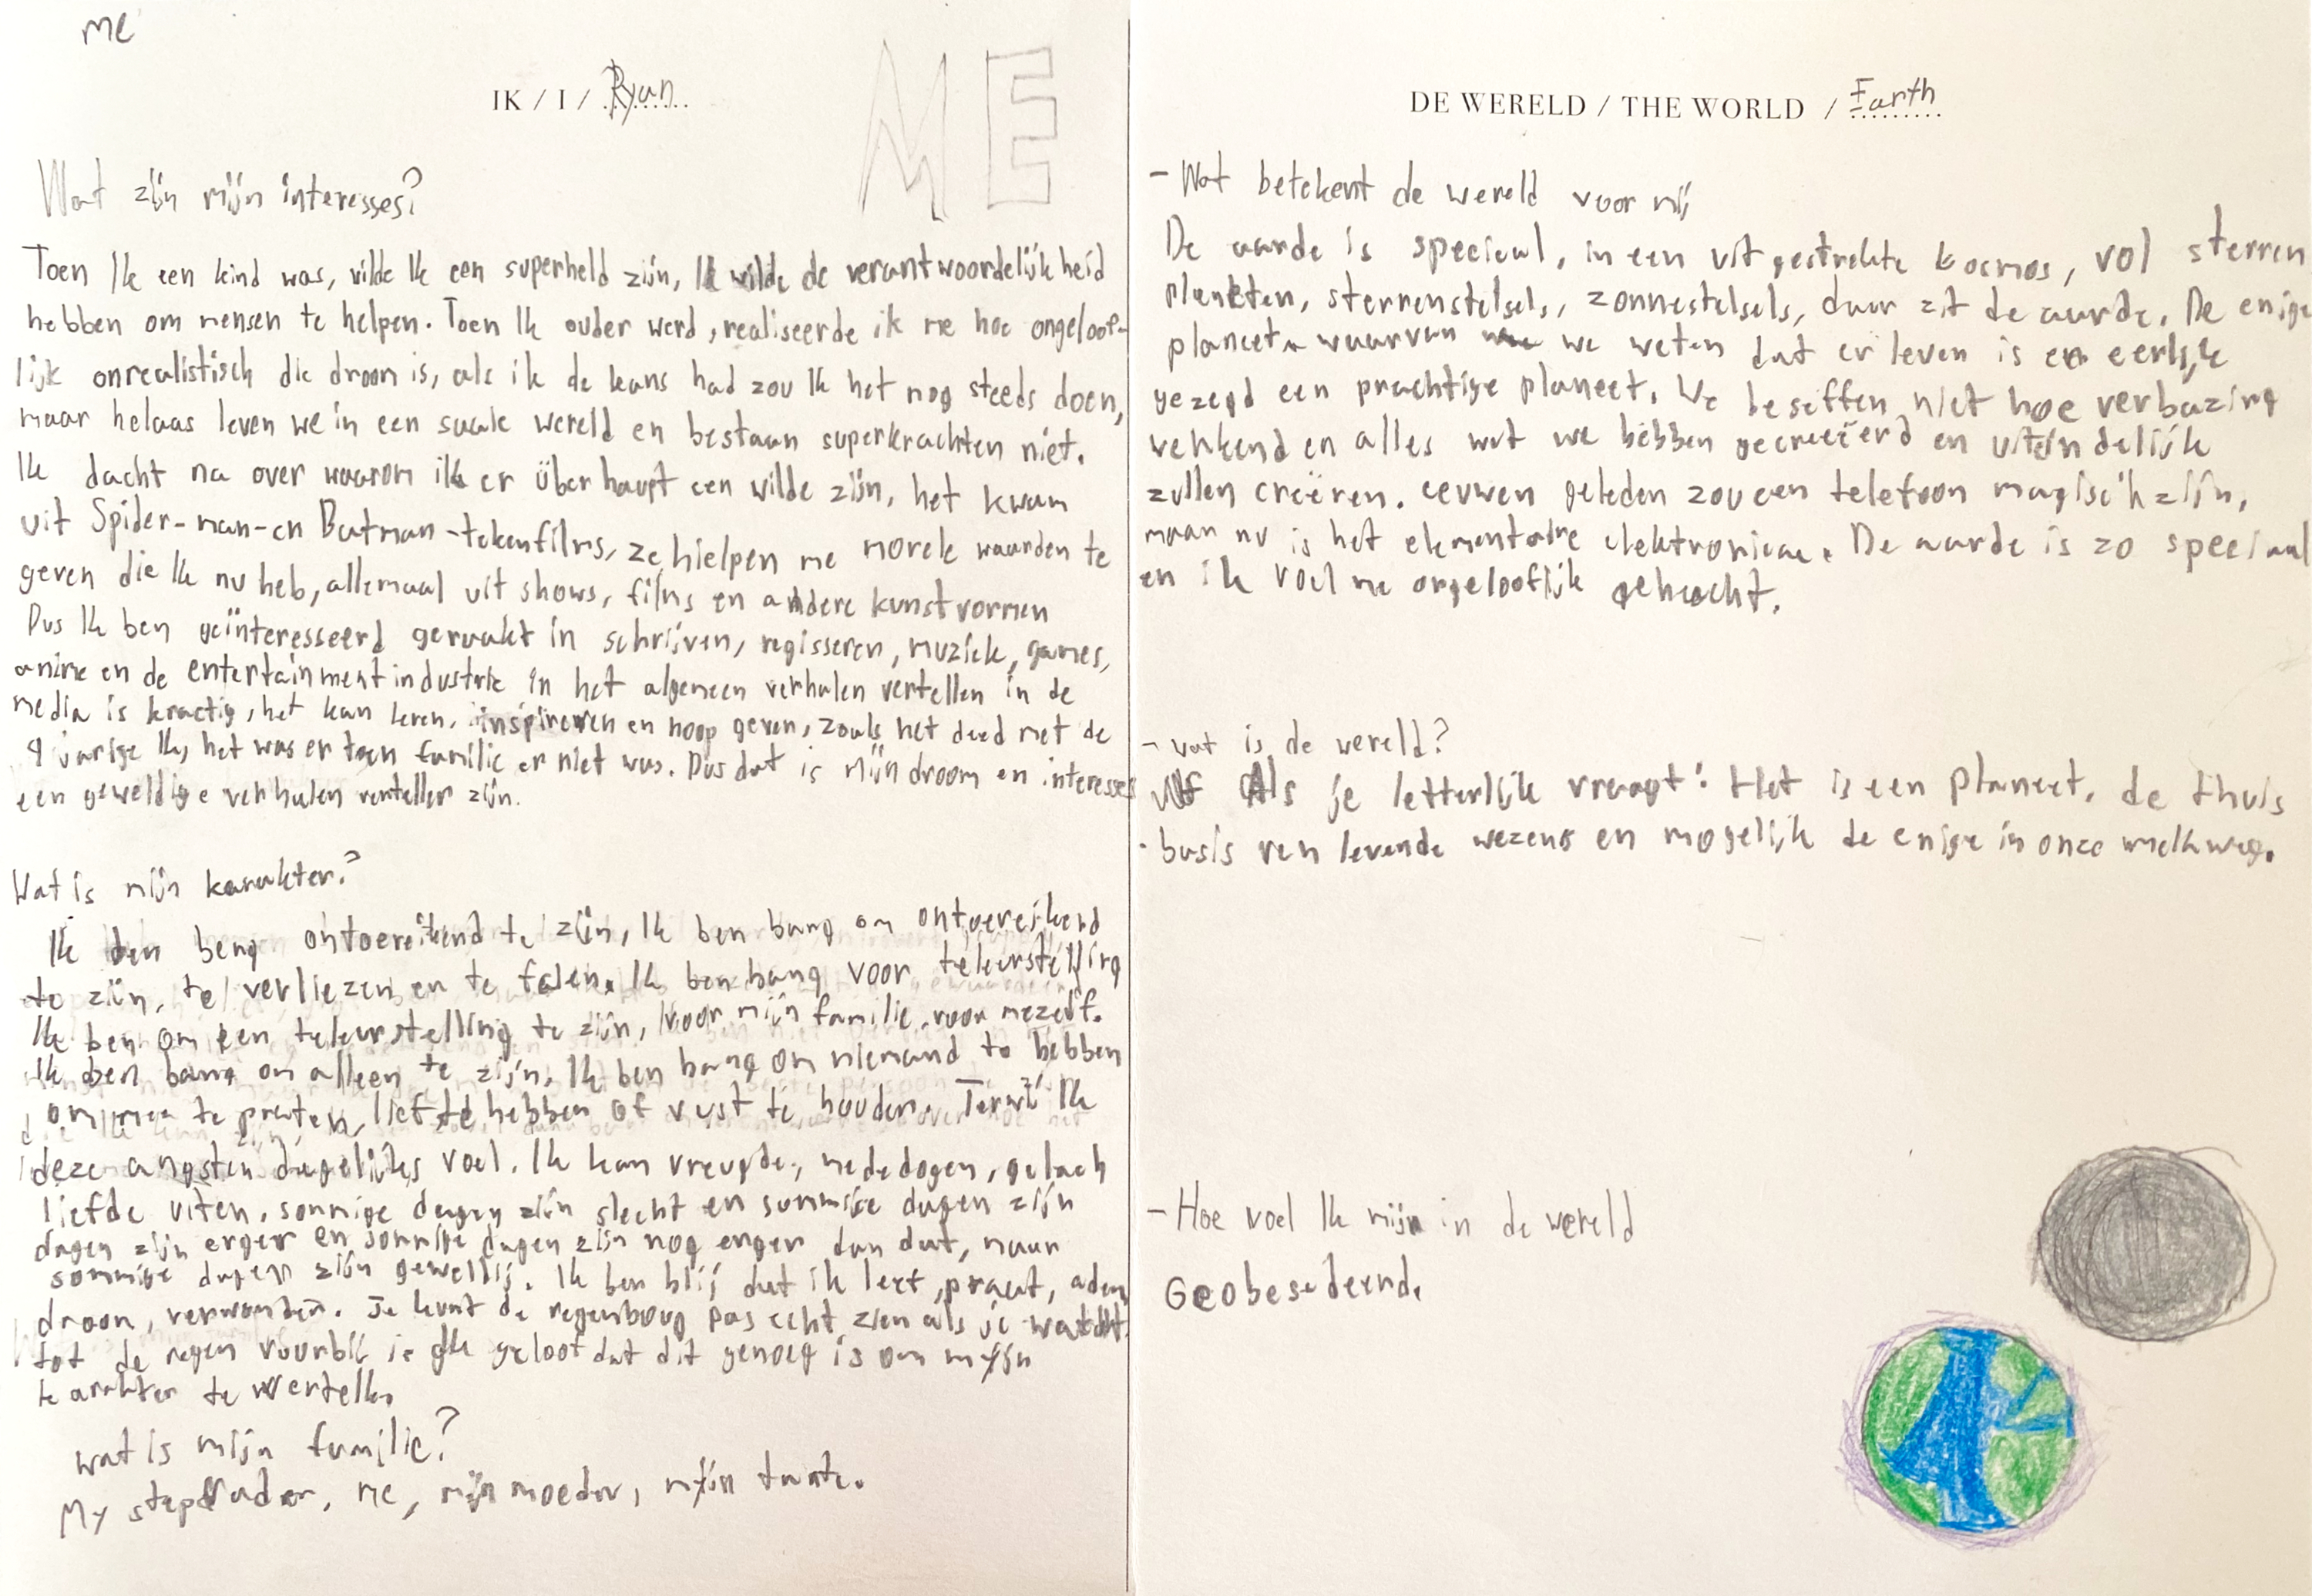 me
IK / I / Ryan
ME
Wat zijn mijn interesses?
Toen Ik een kind was, wilde Ik een superheld zijn, Ik wilde de verantwoordelijkheid
hebben om mensen te helpen. Toen Ik ouder werd, realiseerde ik me hoe ongeloof-
lijk onrealistisch die droom is, als ik de kans had zou Ik het nog steeds doen,
maar helaas leven we in een saaie wereld en bestaan superkrachten niet.
Ik dacht na over waarom ik er überhaupt een wilde zijn, het kwam
uit Spider-man-en Batman-tekenfilms, ze hielpen me morele waarden te
geven die Ik nu heb, allemaal uit shows, films en andere kunstvormen
Dus Ik ben geïnteresseerd geraakt in schrijven, regisseren, muziek, games,
anime en de entertainment industrie in het algemeen verhalen vertellen in de
media is kractig, het kan leren, inspireren en hoop geven, zoals het deed met de
9 jarige Ik, het was er toen familie er niet was. Dus dat is mijn droom en interesses
een geweldige verhalen verteller zijn.
Wat is mijn karakter?
Ik ben beng ontoereikend te zijn, Ik ben bang om ontoereikend
te zijn, te verliezen en te falen. Ik ben bang voor teleurstelling
Ik ben om een teleurstelling te zijn, voor mijn familie, voor mezelf.
Ik ben bang om alleen te zijn. Ik ben bang om niemand te hebben
om mee te praten, lief te hebben of vast te houden. Terwl Ik
deze angsten dagelijks voel. Ik kan vreugde, mededogen, gelach
liefde uiten, sommige dagen zijn slecht en sommige dagen zijn
dagen zijn erger en sommige dagen zijn nog erger dan dat, maar
sommige dagen zijn geweldij. Ik ben blij dat ik leef, praat, adem,
droom, verwonder. Je kunt de regenboog pas echt zien als je wacht
tot de regen voorbij is Ik geloof dat dit genoeg is om mijn
karakter te vertellen
wat is mijn familie?
My stepfader, me, mijn moeder, mijn tante.
DE WERELD / THE WORLD / Earth
- Wat betekent de wereld voor mij
De aarde is speciaal, in een uitgestrekte kosmos, vol sterren
planeten, sterrenstelsels, zonnestelsels, daar zit de aarde. De enige
planeet waarvan we weten dat er leven is en eerlijk
gezegd een prachtige planeet. We beseffen niet hoe verbazing
wekkend en alles wat we hebben gecreëerd en uiteindelijk
zullen creëren. eeuwen geleden zou een telefoon magisch zijn,
maar nu is het elementaire elektronica. De aarde is zo speciaal
en ik voel me ongelooflijk gehecht.
- wat is de wereld?
Als je letterlijk vraagt: Het is een planeet, de thuis
basis van levende wezens en mogelijk de enige in onze melkweg.
- Hoe voel Ik mijn in de wereld
Geobesedeernd.